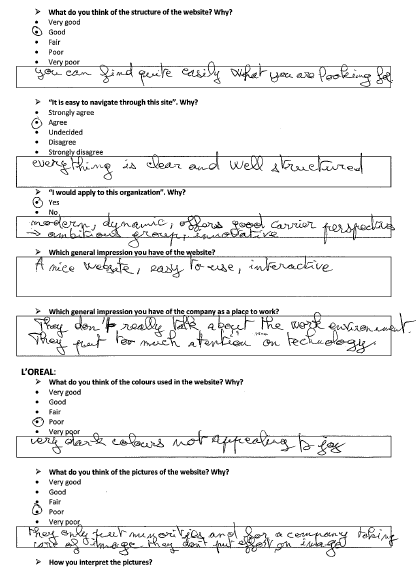 ➤ What do you think of the structure of the website? Why?
• Very good
• Good
• Fair
• Poor
• Very poor
you can find quite easily what you are looking for
➤ "It is easy to navigate through this site". Why?
• Strongly agree
• Agree
• Undecided
• Disagree
• Strongly disagree
everything is clear and well structured
➤ "I would apply to this organization". Why?
• Yes
• No
modern, dynamic, offers good carrier perspectives
→ ambitious group, innovative
➤ Which general impression you have of the website?
A nice website, easy to use, interactive
➤ Which general impression you have of the company as a place to work?
They don't really talk about the work environment.
They put too much atention on technology.
L'OREAL:
➤ What do you think of the colours used in the website? Why?
• Very good
• Good
• Fair
• Poor
• Very poor
very dark colours not appealing to joy
➤ What do you think of the pictures of the website? Why?
• Very good
• Good
• Fair
• Poor
• Very poor
they only put minorities and for a company taking
care of image they don't put effort on image
➤ How you interpret the pictures?